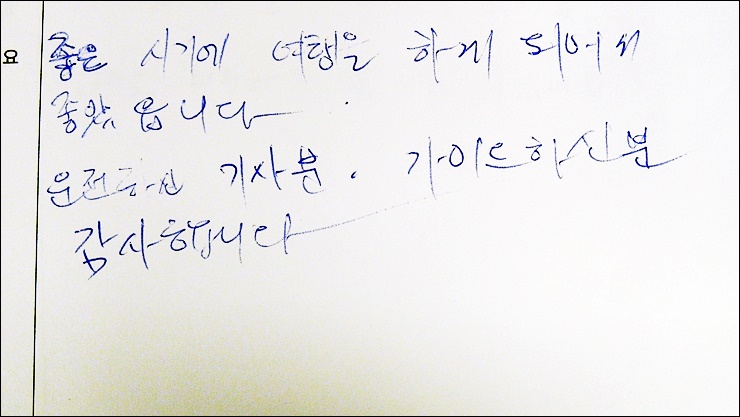 요
좋은 시기에 여행을 하게 되어서
좋았읍니다
운전하신 기사분. 가이드하신분
감사합니다